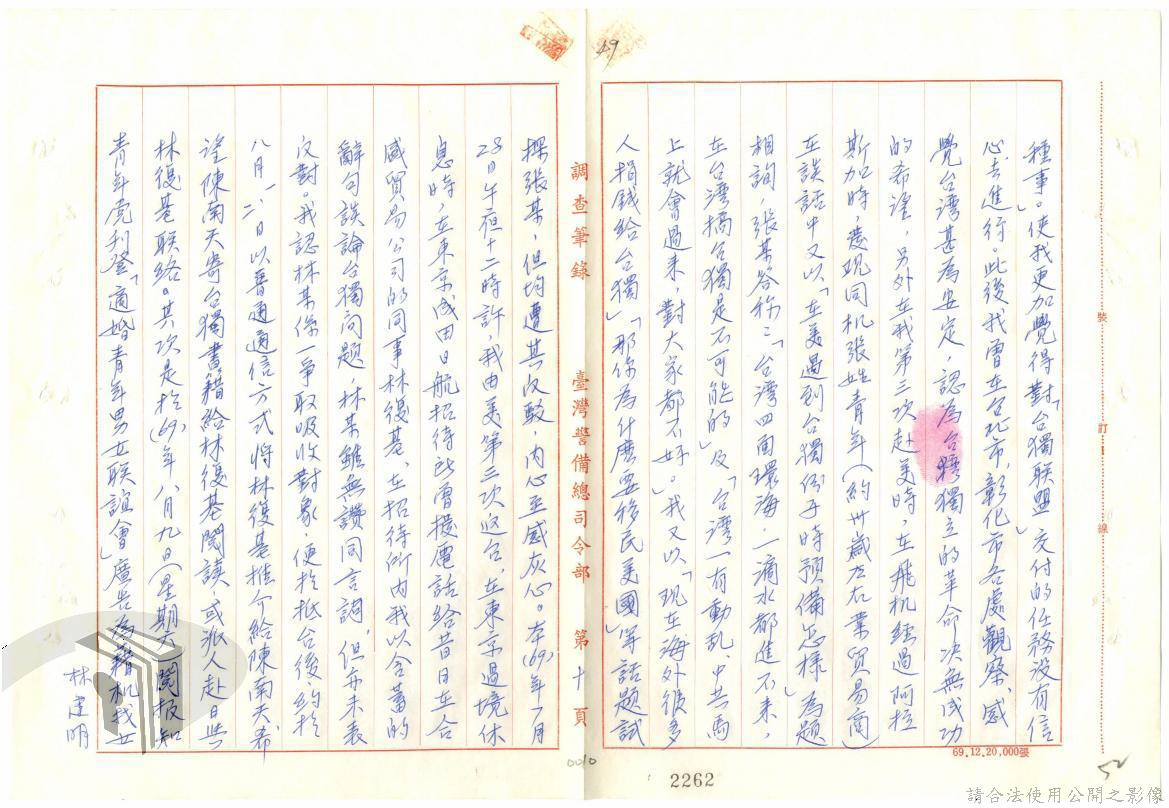 種事。」使我更加覺得對「台獨联盟」交付的任務没有信
心去進行。此後我曾在台北市、彰化市各處觀察、感
覺台湾甚為安定，認為台獨獨立的革命决無成功
的希望，另外在我第三次赴美時，在飛机經過阿拉
斯加時，發現同机張姓青年（約卅歲左右業貿易商）
在談話中又以「在美遇到台獨份子時預備怎樣」為題
相詢，張某答称：「台湾四面環海，一滴水都進不来，
在台湾搞台獨是不可能的」及「台湾一有動乱，中共馬
上就會過来，對大家都不好」。我又以「現在海外很多
人捐錢給台獨」「那你為什麽要移民美國」等話題試
探張某，但均遭其反駁，内心至感灰心。本(69)年一月
28日午夜十二時許，我由美第三次返台，在東京過境休
息時，在東京成田日航招待所曾掛電話給昔日在合
盛貿易公司的同事林俊基、在招待所内我以含蓄的
辭句談論台獨问题，林某雖無讚同言詞，但亦未表
反對。我認林某係一爭取吸收對象，便於抵台後約於
八月一、八日以普通通信方式將林俊基推介給陳南天、希
望陳南天寄台獨書籍給林俊基閱讀，或派人赴日與
林俊基联絡。其次是於(69)年八月九日（星期六）閱报知
青年虎利登「適婚青年男女联誼會」廣告為藉机找女
林達明
調查筆錄
臺灣警備總司令部
第十頁
裝
訂
線
69.12.20,000張
49
52
0010
2262
請合法使用公開之影像